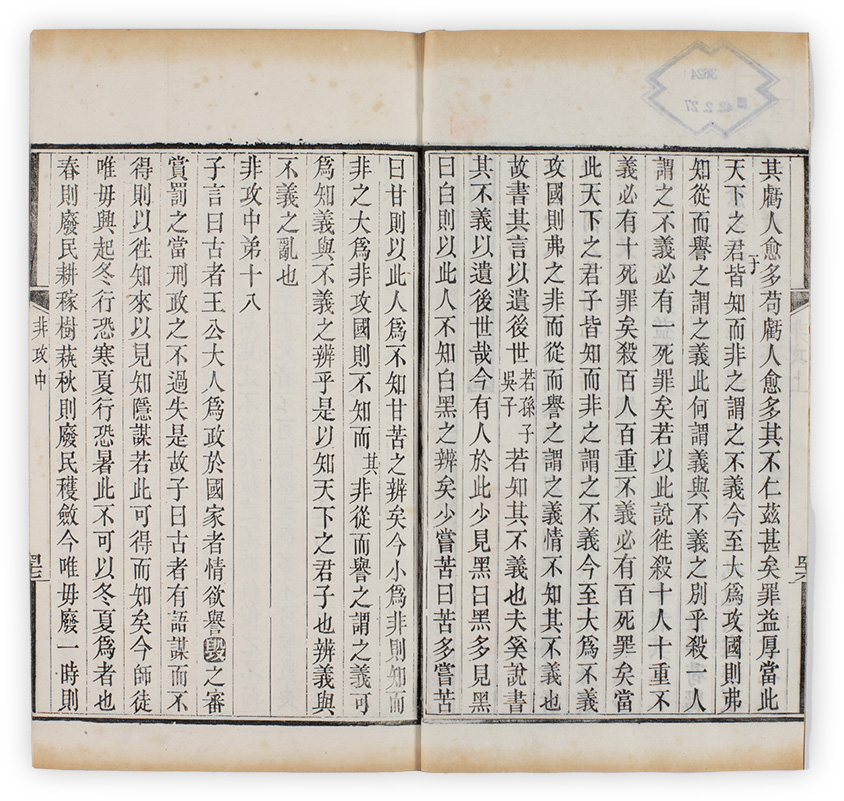 其虧人愈多苟虧人愈多其不仁茲甚矣罪益厚當此
天下之君子皆知而非之謂之不義今至大爲攻國則弗
知從而譽之謂之義此何謂義與不義之別乎殺一人
謂之不義必有一死罪矣若以此說往殺十人十重不
義必有十死罪矣殺百人百重不義必有百死罪矣當
此天下之君子皆知而非之謂之不義今至大爲不義
攻國則弗之非而從而譽之謂之義情不知其不義也
故書其言以遺後世若孫子吳子若知其不義也夫奚說書
其不義以遺後世哉今有人於此少見黑曰黑多見黑
曰白則以此人不知白黑之辨矣少嘗苦曰苦多嘗苦
曰甘則以此人爲不知甘苦之辨矣今小爲非則知而
非之大爲非攻國則不知而其非從而譽之謂之義可
爲知義與不義之辨乎是以知天下之君子也辨義與
不義之亂也
非攻中弟十八
子言曰古者王公大人爲政於國家者情欲譽毀之審
賞罰之當刑政之不過失是故子曰古者有語謀而不
得則以往知來以見知隱謀若此可得而知矣今師徒
唯毋興起冬行恐寒夏行恐暑此不可以冬夏爲者也
春則廢民耕稼樹蓺秋則廢民穫斂今唯毋廢一時則
非攻中